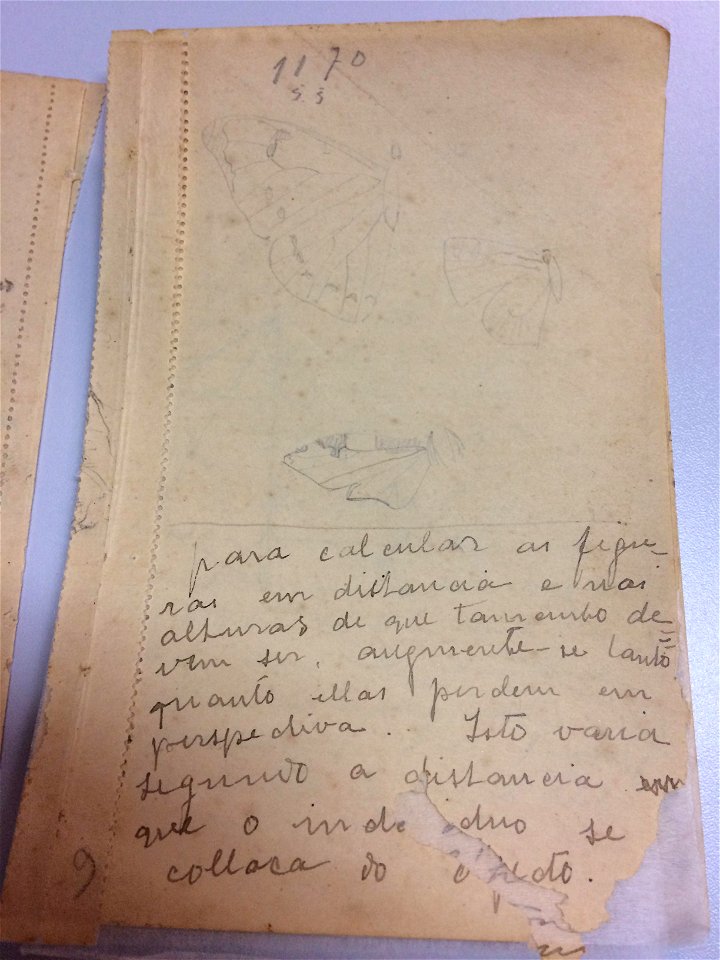 1170
5 5
para calcular as figu-
ras em distancia e nas
alturas de que tamanho de-
vem ser, augmente-se tanto
quanto ellas perdem em
perspectiva.. Isto varia
segundo a distancia em
que o individuo se
colloca do objecto.
9